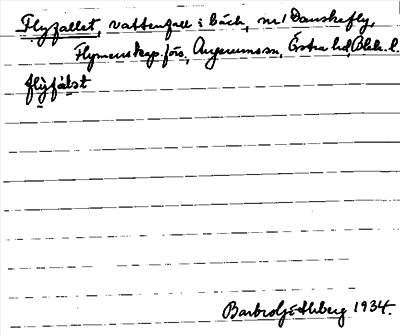 Flyfallet, vattenfall i bäck, nr 1 Danskefly,
Flymenskap. förs., Augerums sn, Östra hd, Blek. l.
flyfalst
Barbro Ahlberg 1934.